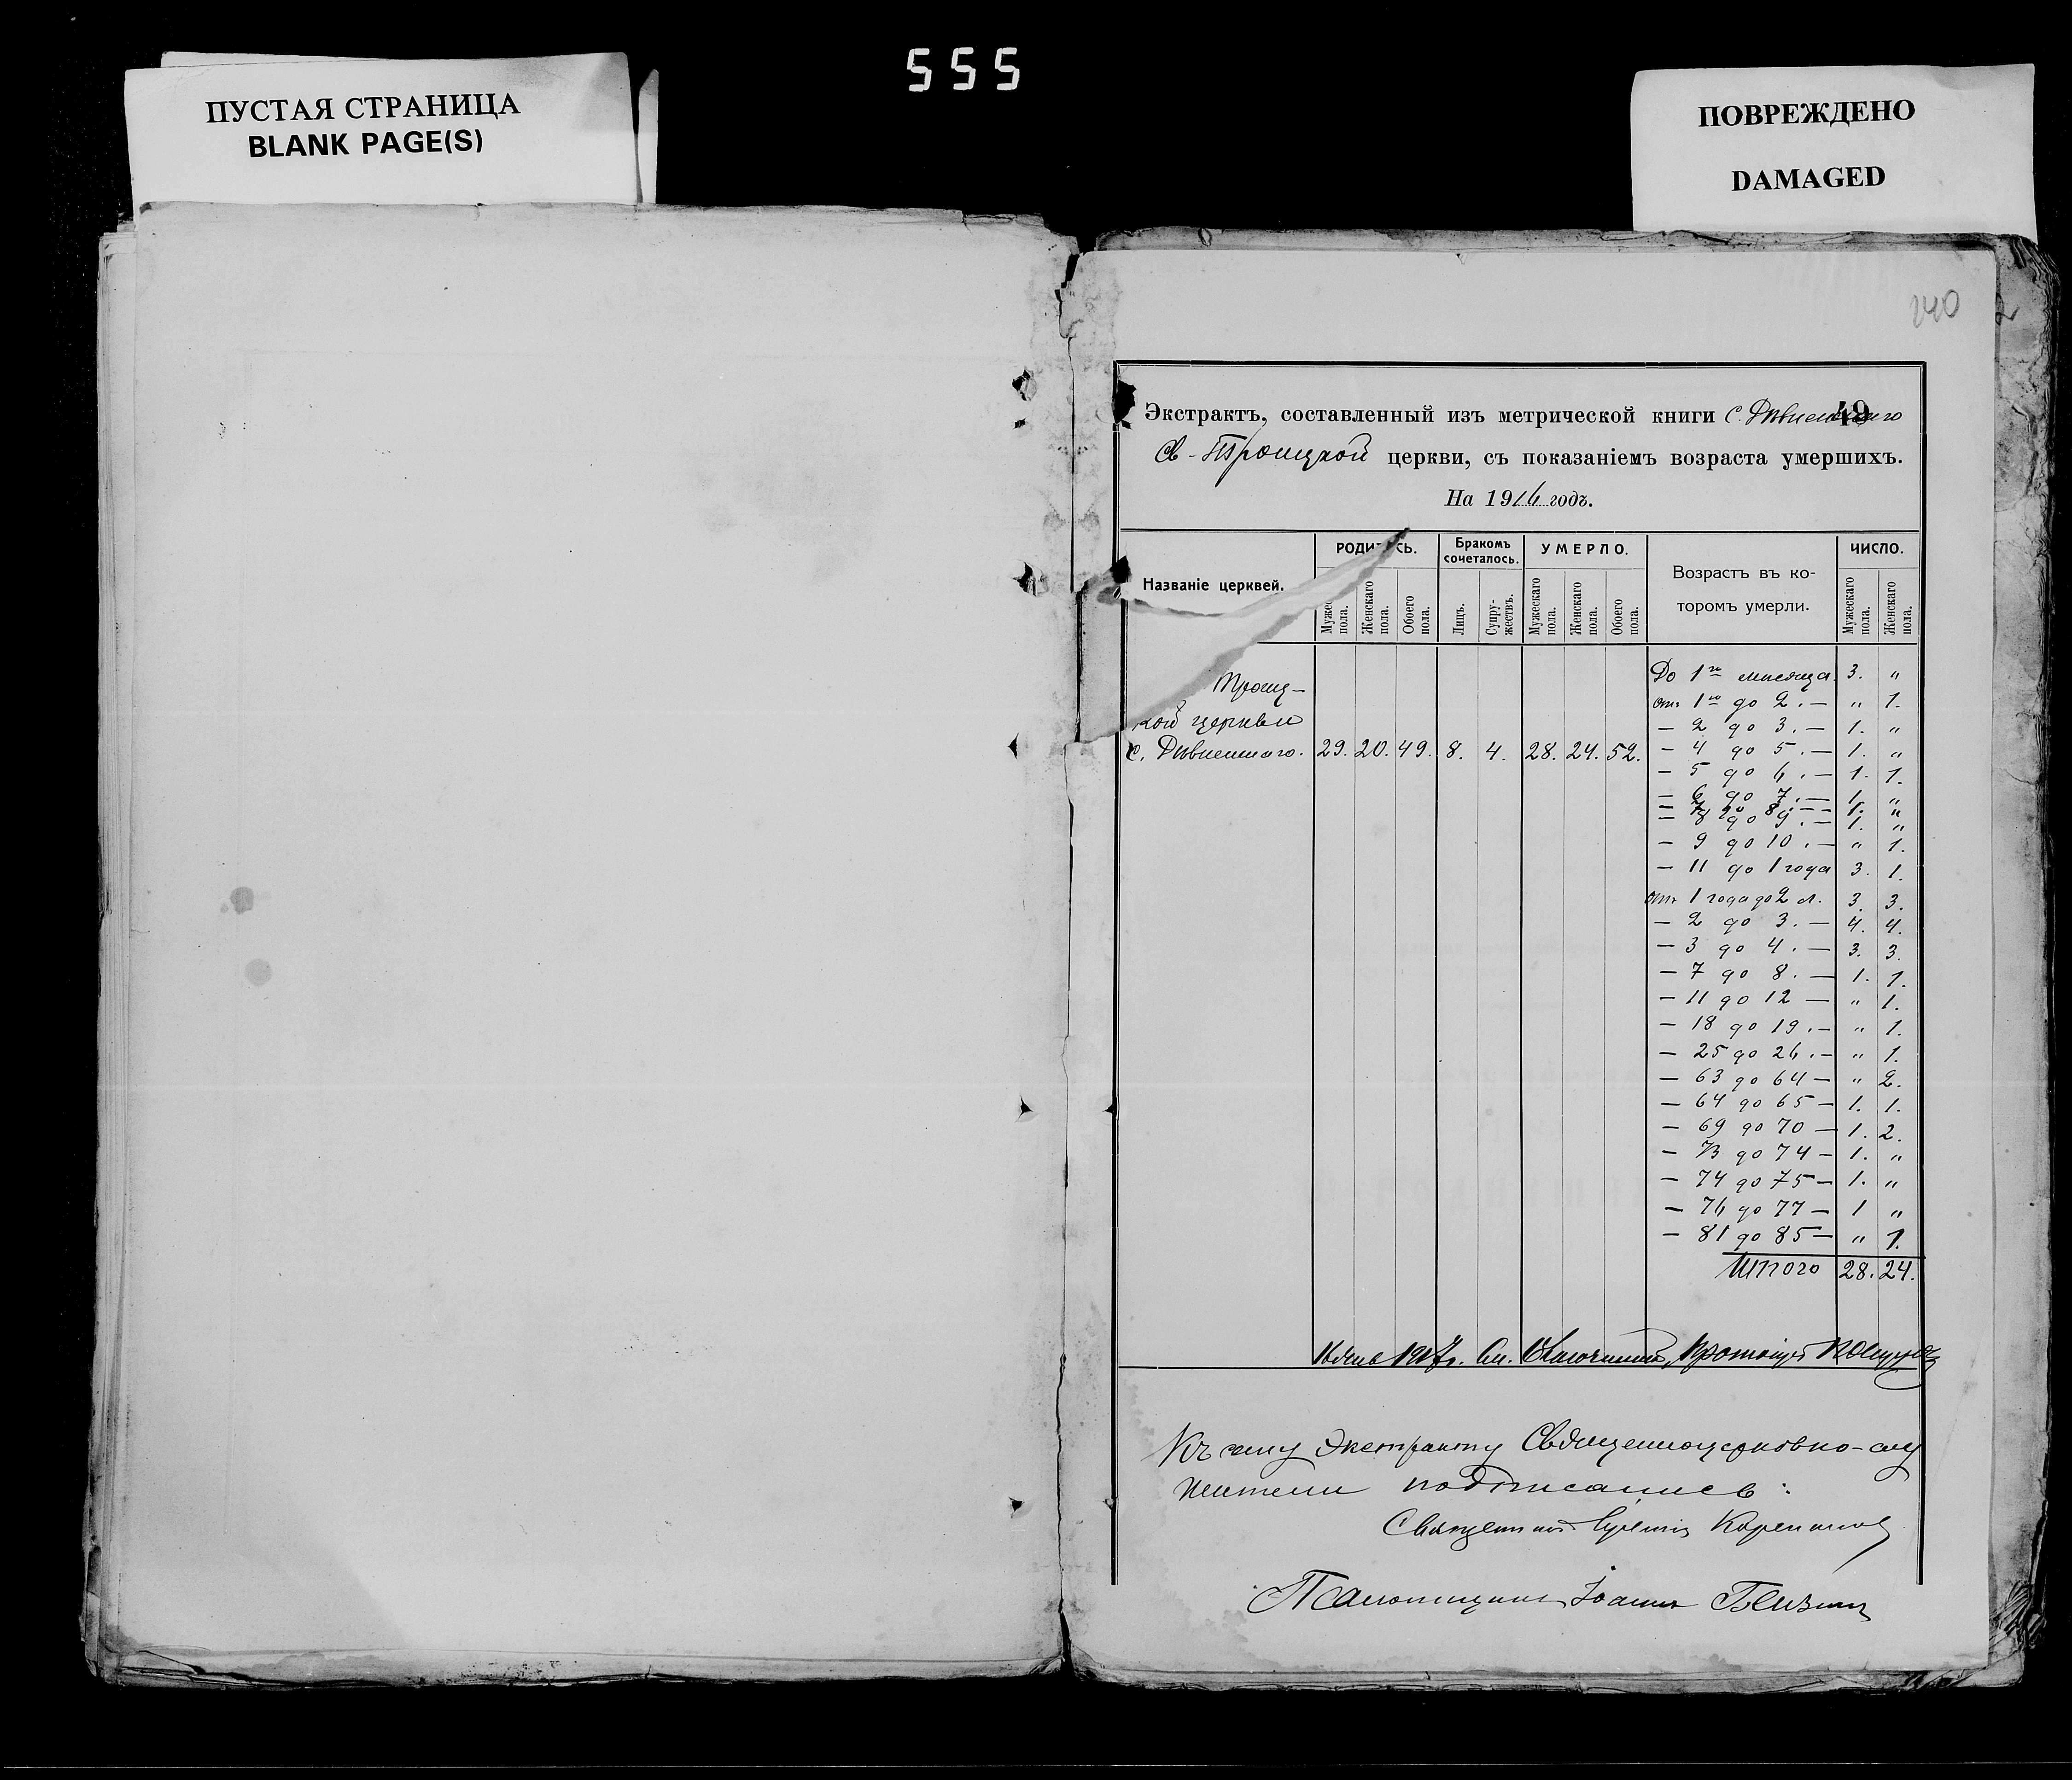 555
ПУСТАЯ СТРАНИЦА
BLANK PAGE(S)
ПОВРЕЖДЕНО
DAMAGED
240
49
Экстрактъ, составленный изъ метрической книги с. Дивненскаго
Св-Троицкой церкви, съ показаніемъ возраста умершихъ.
На 1916 годъ.
Названіе церквей.
РОДИ СЬ.
Бракомъ сочеталось.
УМЕРЛО.
Возрастъ въ которомъ умерли.
ЧИСЛО.
Мужес пола. Женскаго пола. Обоего пола. Лицъ. Супружествъ. Мужескаго пола. Женскаго пола. Обоего пола. Мужескаго пола. Женскаго пола.
Троиц-
кой церкви
с. Дивненскаго. 29. 20. 49. 8. 4. 28. 24. 52.
До 1го мѣсяца. 3. "
отъ 1го до 2. — " 1.
— 2 до 3. — 1. "
— 4 до 5. — 1. "
— 5 до 6. — 1. 1.
— 6 до 7. — 1. "
— 7 до 8. — 1. "
— 8 до 9. — 1. "
— 9 до 10. — " 1.
— 11 до 1 года 3. 1.
отъ 1 года до 2 л. 3. 3.
— 2 до 3. — 4. 4.
— 3 до 4. — 3. 3.
— 7 до 8. — 1. 1.
— 11 до 12 — " 1.
— 18 до 19. — " 1.
— 25 до 26. — " 1.
— 63 до 64 — " 2.
— 64 до 65 — 1. 1.
— 69 до 70 — 1. 2.
— 73 до 74 — 1. "
— 74 до 75 — 1. "
— 76 до 77 — 1 "
— 81 до 85 — " 1.
Итого 28. 24.
1917г. Протоіерей
Къ сему Экстракту Священноцерковно-слу
жители подписались:
Священникъ
Псаломщикъ Іоаннъ